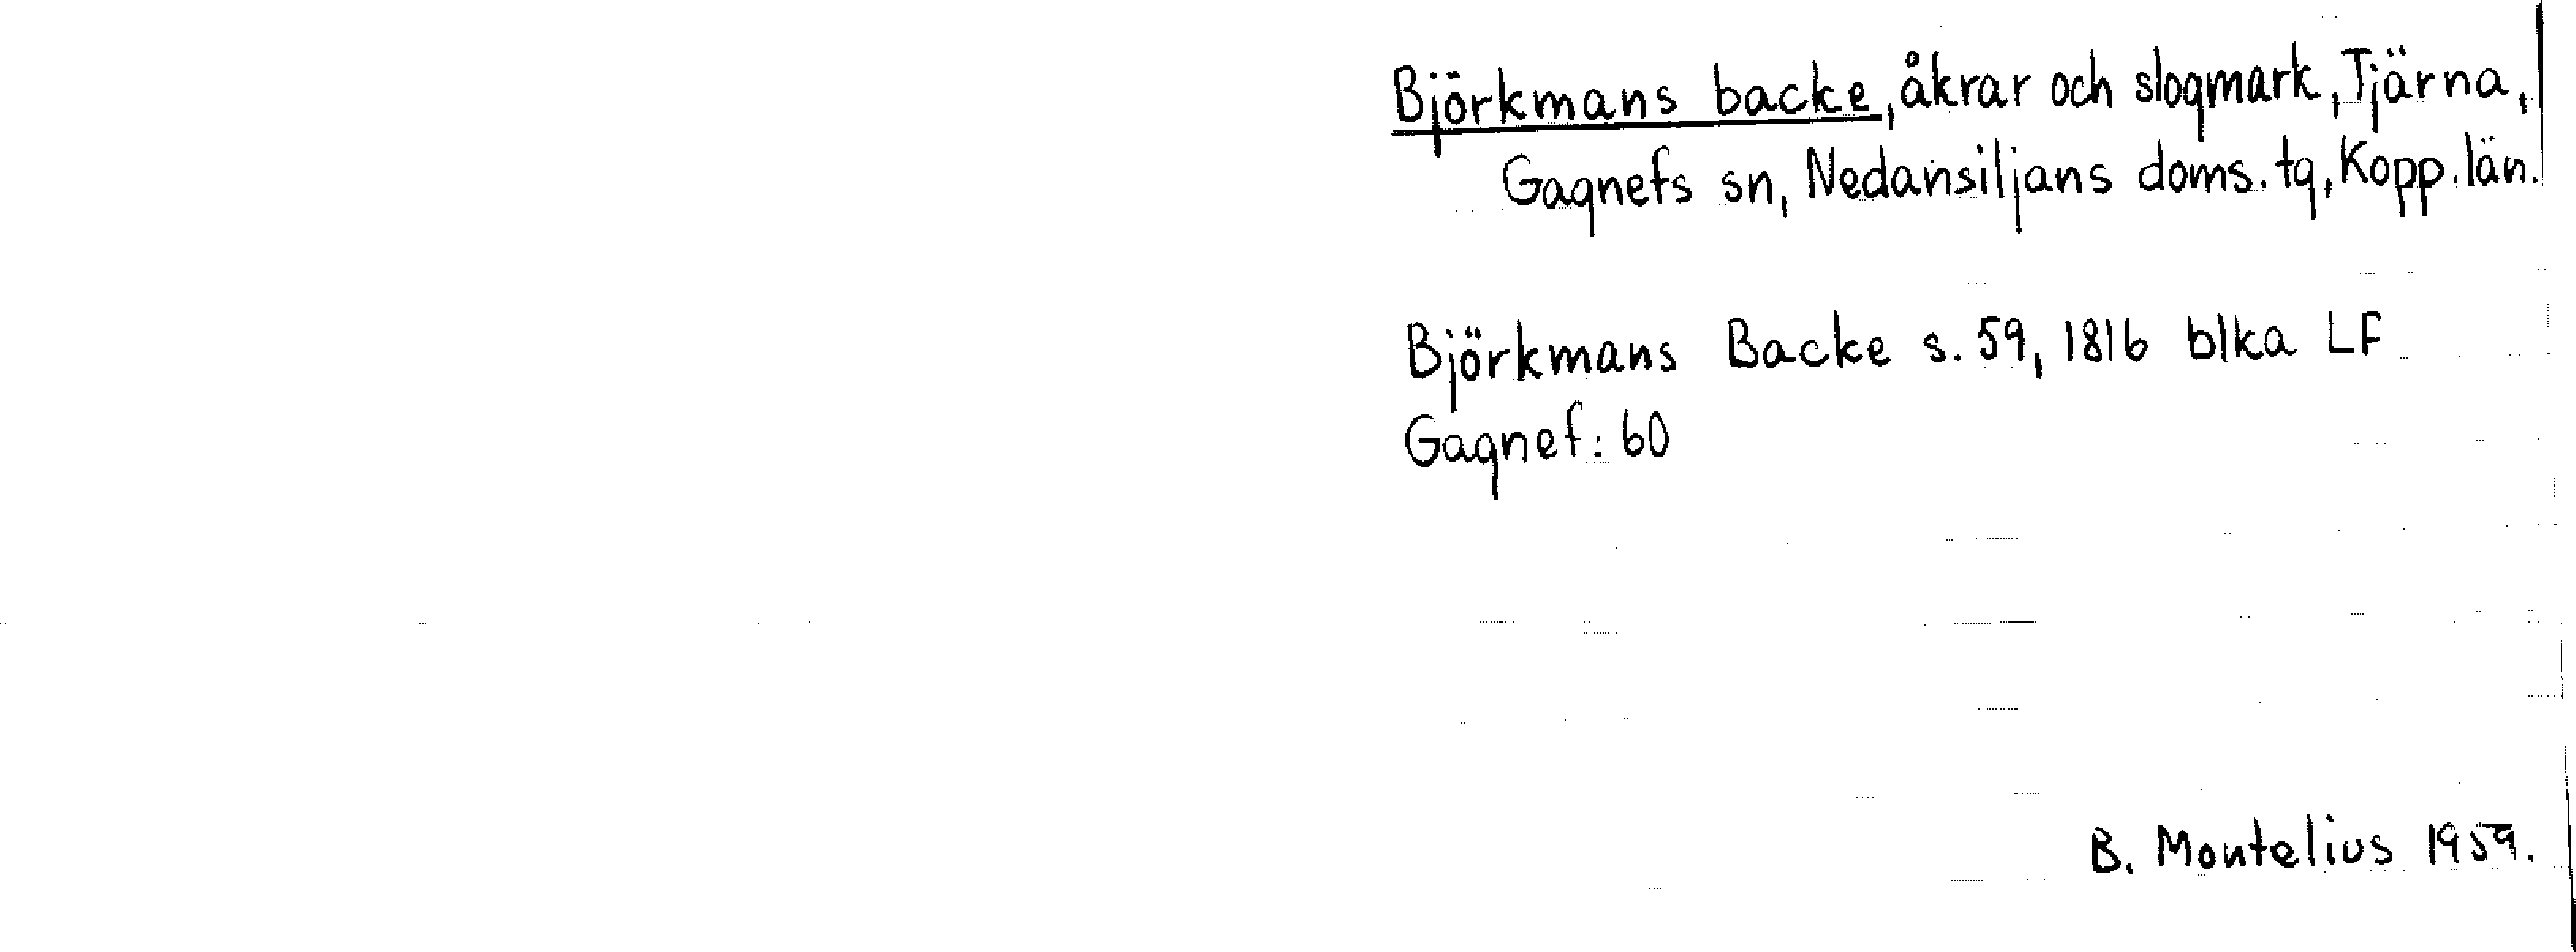 Björkmans backe, åkrar och slogmark, Tjärna,
Gagnefs sn, Nedansiljans doms. tg, Kopp. län.
Björkmans Backe s. 59, 1816 blka LF
Gagnef: 60
B. Montelius 1959.